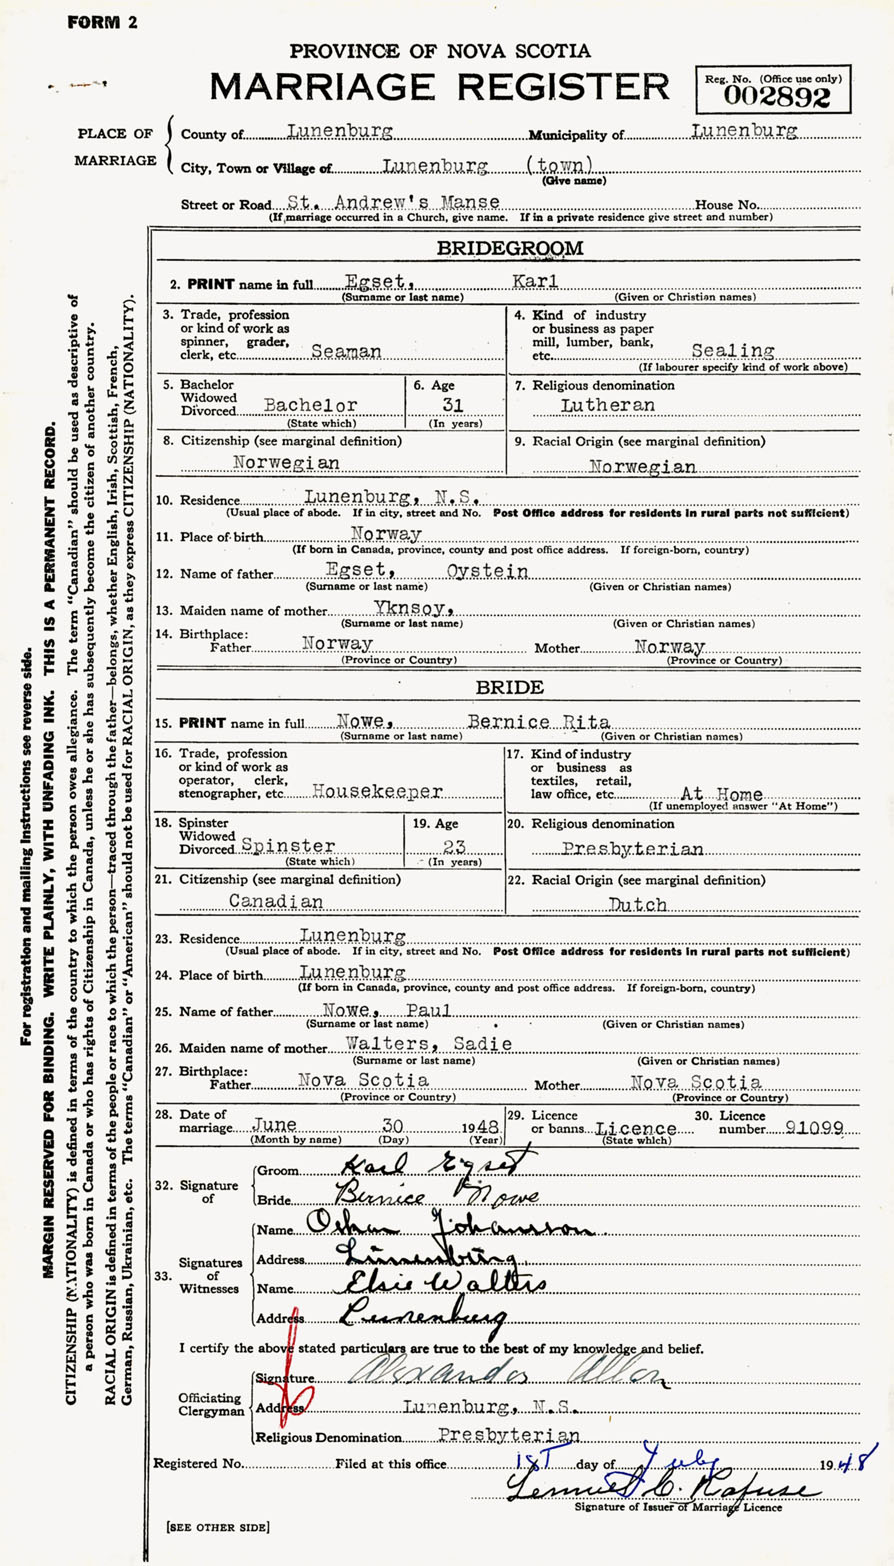 FORM 2
PROVINCE OF NOVA SCOTIA
MARRIAGE REGISTER
Reg. No. (Office use only)
002892
PLACE OF MARRIAGE
County of Lunenburg Municipality of Lunenburg
City, Town or Village of Lunenburg (town)
(Give name)
Street or Road St. Andrew's Manse House No.
(If marriage occurred in a Church, give name. If in a private residence give street and number)
BRIDEGROOM
2. PRINT name in full Egset, Karl
(Surname or last name) (Given or Christian names)
3. Trade, profession
or kind of work as
spinner, grader,
clerk, etc. Seaman
4. Kind of industry
or business as paper
mill, lumber, bank,
etc. Sealing
(If labourer specify kind of work above)
5. Bachelor
Widowed
Divorced Bachelor
(State which)
6. Age
31
(In years)
7. Religious denomination
Lutheran
8. Citizenship (see marginal definition)
Norwegian
9. Racial Origin (see marginal definition)
Norwegian
10. Residence Lunenburg, N.S.
(Usual place of abode. If in city, street and No. Post Office address for residents in rural parts not sufficient)
11. Place of birth Norway
(If born in Canada, province, county and post office address. If foreign-born, country)
12. Name of father Egset, Oystein
(Surname or last name) (Given or Christian names)
13. Maiden name of mother Yknsoy,
(Surname or last name) (Given or Christian names)
14. Birthplace:
Father Norway Mother Norway
(Province or Country) (Province or Country)
BRIDE
15. PRINT name in full Nowe, Bernice Rita
(Surname or last name) (Given or Christian names)
16. Trade, profession
or kind of work as
operator, clerk,
stenographer, etc. Housekeeper
17. Kind of industry
or business as
textiles, retail,
law office, etc. At Home
(If unemployed answer "At Home")
18. Spinster
Widowed
Divorced Spinster
(State which)
19. Age
23
(In years)
20. Religious denomination
Presbyterian
21. Citizenship (see marginal definition)
Canadian
22. Racial Origin (see marginal definition)
Dutch
23. Residence Lunenburg
(Usual place of abode. If in city, street and No. Post Office address for residents in rural parts not sufficient)
24. Place of birth Lunenburg
(If born in Canada, province, county and post office address. If foreign-born, country)
25. Name of father Nowe, Paul
(Surname or last name) (Given or Christian names)
26. Maiden name of mother Walters, Sadie
(Surname or last name) (Given or Christian names)
27. Birthplace:
Father Nova Scotia Mother Nova Scotia
(Province or Country) (Province or Country)
28. Date of
marriage June 30 1948
(Month by name) (Day) (Year)
29. Licence
or banns Licence
(State which)
30. Licence
number 91099
32. Signature of
Groom Karl Egset
Bride Bernice Nowe
33. Signatures of Witnesses
Name Johansson
Address Lunenburg
Name Elsie Walters
Address Lunenburg
I certify the above stated particulars are true to the best of my knowledge and belief.
Officiating Clergyman
Signature Alexander Allen
Address Lunenburg, N.S.
Religious Denomination Presbyterian
Registered No. Filed at this office 1st day of July 1948
Lemuel C. Rafuse
Signature of Issuer of Marriage Licence
[SEE OTHER SIDE]
For registration and mailing instructions see reverse side.
MARGIN RESERVED FOR BINDING. WRITE PLAINLY, WITH UNFADING INK. THIS IS A PERMANENT RECORD.
CITIZENSHIP (NATIONALITY) is defined in terms of the country to which the person owes allegiance. The term "Canadian" should be used as descriptive of
a person who was born in Canada or who has rights of Citizenship in Canada, unless he or she has subsequently become the citizen of another country.
RACIAL ORIGIN is defined in terms of the people or race to which the person—traced through the father—belongs, whether English, Irish, Scottish, French,
German, Russian, Ukrainian, etc. The terms "Canadian" or "American" should not be used for RACIAL ORIGIN, as they express CITIZENSHIP (NATIONALITY).